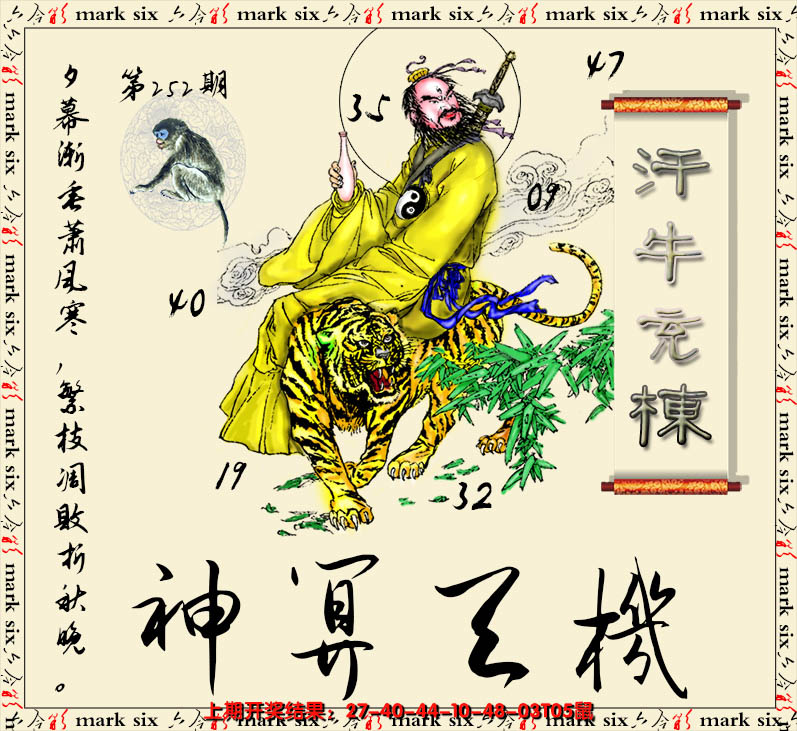 六合彩 mark six 六合彩 mark six 六合彩 mark six 六合彩 mark six 六合彩 mark six
第252期
夕幕渐垂萧风寒,繁枝凋败折秋晚。
35
47
09
40
19
32
汗牛充棟
神算天機
上期开奖结果:27-40-44-10-48-03T05鼠
六合彩 mark six 六合彩 mark six 六合彩 mark six 六合彩 mark six 六合彩 mark six